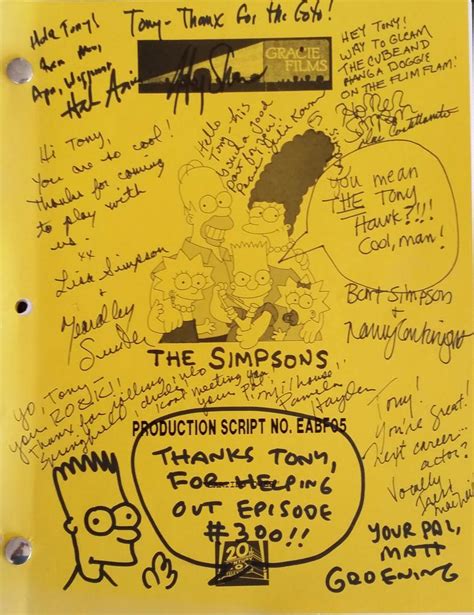 Hola Tony!
Apu, Wiggum,
Tony - Thanx for the Goto!
GRACIE
FILMS
HEY TONY!
WAY TO GLEAM
THE CUBE AND
HANG A DOGGIE
ON THE FLIM FLAM!
Homer
Simpson
Dan Castellaneta
Hello
Tony - his
being a good
Julie Kavner
Hi Tony,
You are so cool!
Thanks for coming
to play with
us.
xx
Lisa Simpson
+
Yeardley
Smith
You mean
THE Tony
Hawk?!!!
Cool, man!
Bart Simpson
+
Nancy Cartwright
THE SIMPSONS
Yo, Tony
you ROCK!
Thanx for falling into
Springfield, dude!
meeting you
your Pal,
Milhouse
Pamela
Hayden
PRODUCTION SCRIPT NO. EABF05
THANKS TONY,
FOR HELPING
OUT EPISODE
#300!!
Tony!
You're great!
Next career...
actor?
Vocally
Tress
MacNeille
YOUR PAL,
MATT
GROENING
20